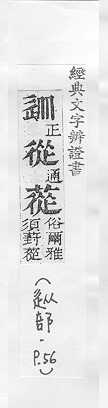 經典文字辨證書
正從通蓯俗爾雅須葑蓯
(从部-P.56)